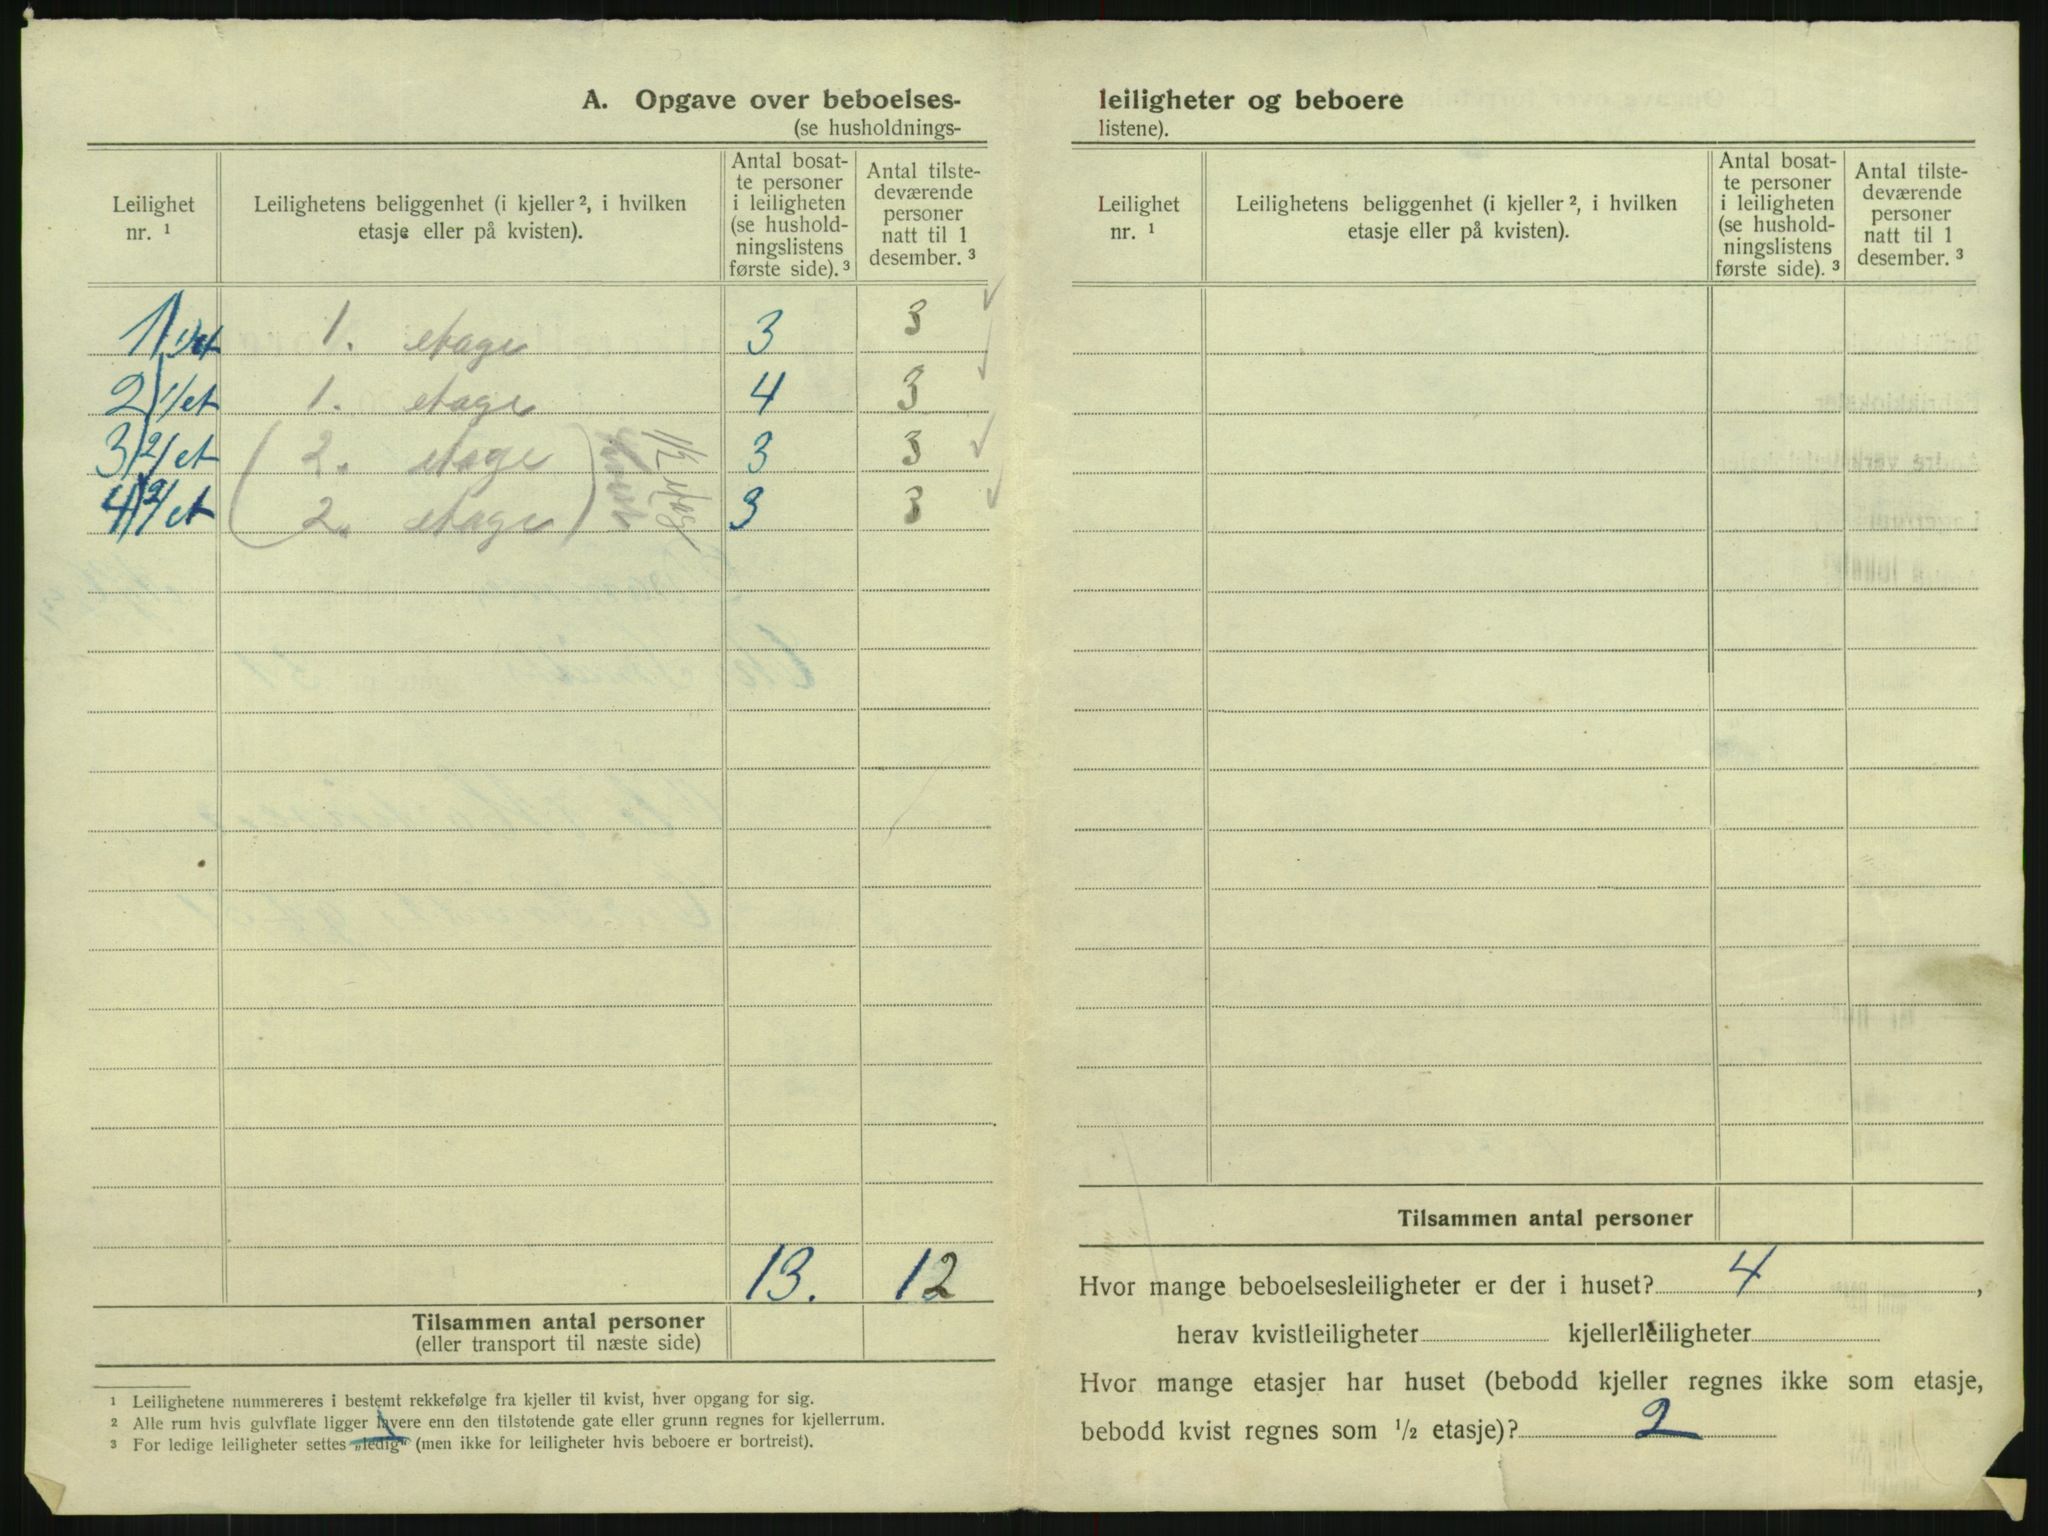 A. Opgave over beboelses-
(se husholdnings-
Leilighet nr. ¹
Leilighetens beliggenhet (i kjeller ², i hvilken etasje eller på kvisten).
Antal bosatte personer i leiligheten (se husholdningslistens første side). ³
Antal tilstedeværende personer natt til 1 desember. ³
1 1/et 1. etage 3 3
2 1/et 1. etage 4 3
3 2/et 2. etage 3 3
4 2/et 2. etage 3 3
1/2 etage
13. 12
Tilsammen antal personer
(eller transport til næste side)
¹ Leilighetene nummereres i bestemt rekkefølge fra kjeller til kvist, hver opgang for sig.
² Alle rum hvis gulvflate ligger lavere enn den tilstøtende gate eller grunn regnes for kjellerrum.
³ For ledige leiligheter settes „ledig" (men ikke for leiligheter hvis beboere er bortreist).
leiligheter og beboere
listene).
Leilighet nr. ¹
Leilighetens beliggenhet (i kjeller ², i hvilken etasje eller på kvisten).
Antal bosatte personer i leiligheten (se husholdningslistens første side). ³
Antal tilstedeværende personer natt til 1 desember. ³
Tilsammen antal personer
Hvor mange beboelsesleiligheter er der i huset? 4 ,
herav kvistleiligheter kjellerleiligheter
Hvor mange etasjer har huset (bebodd kjeller regnes ikke som etasje,
bebodd kvist regnes som ½ etasje)? 2